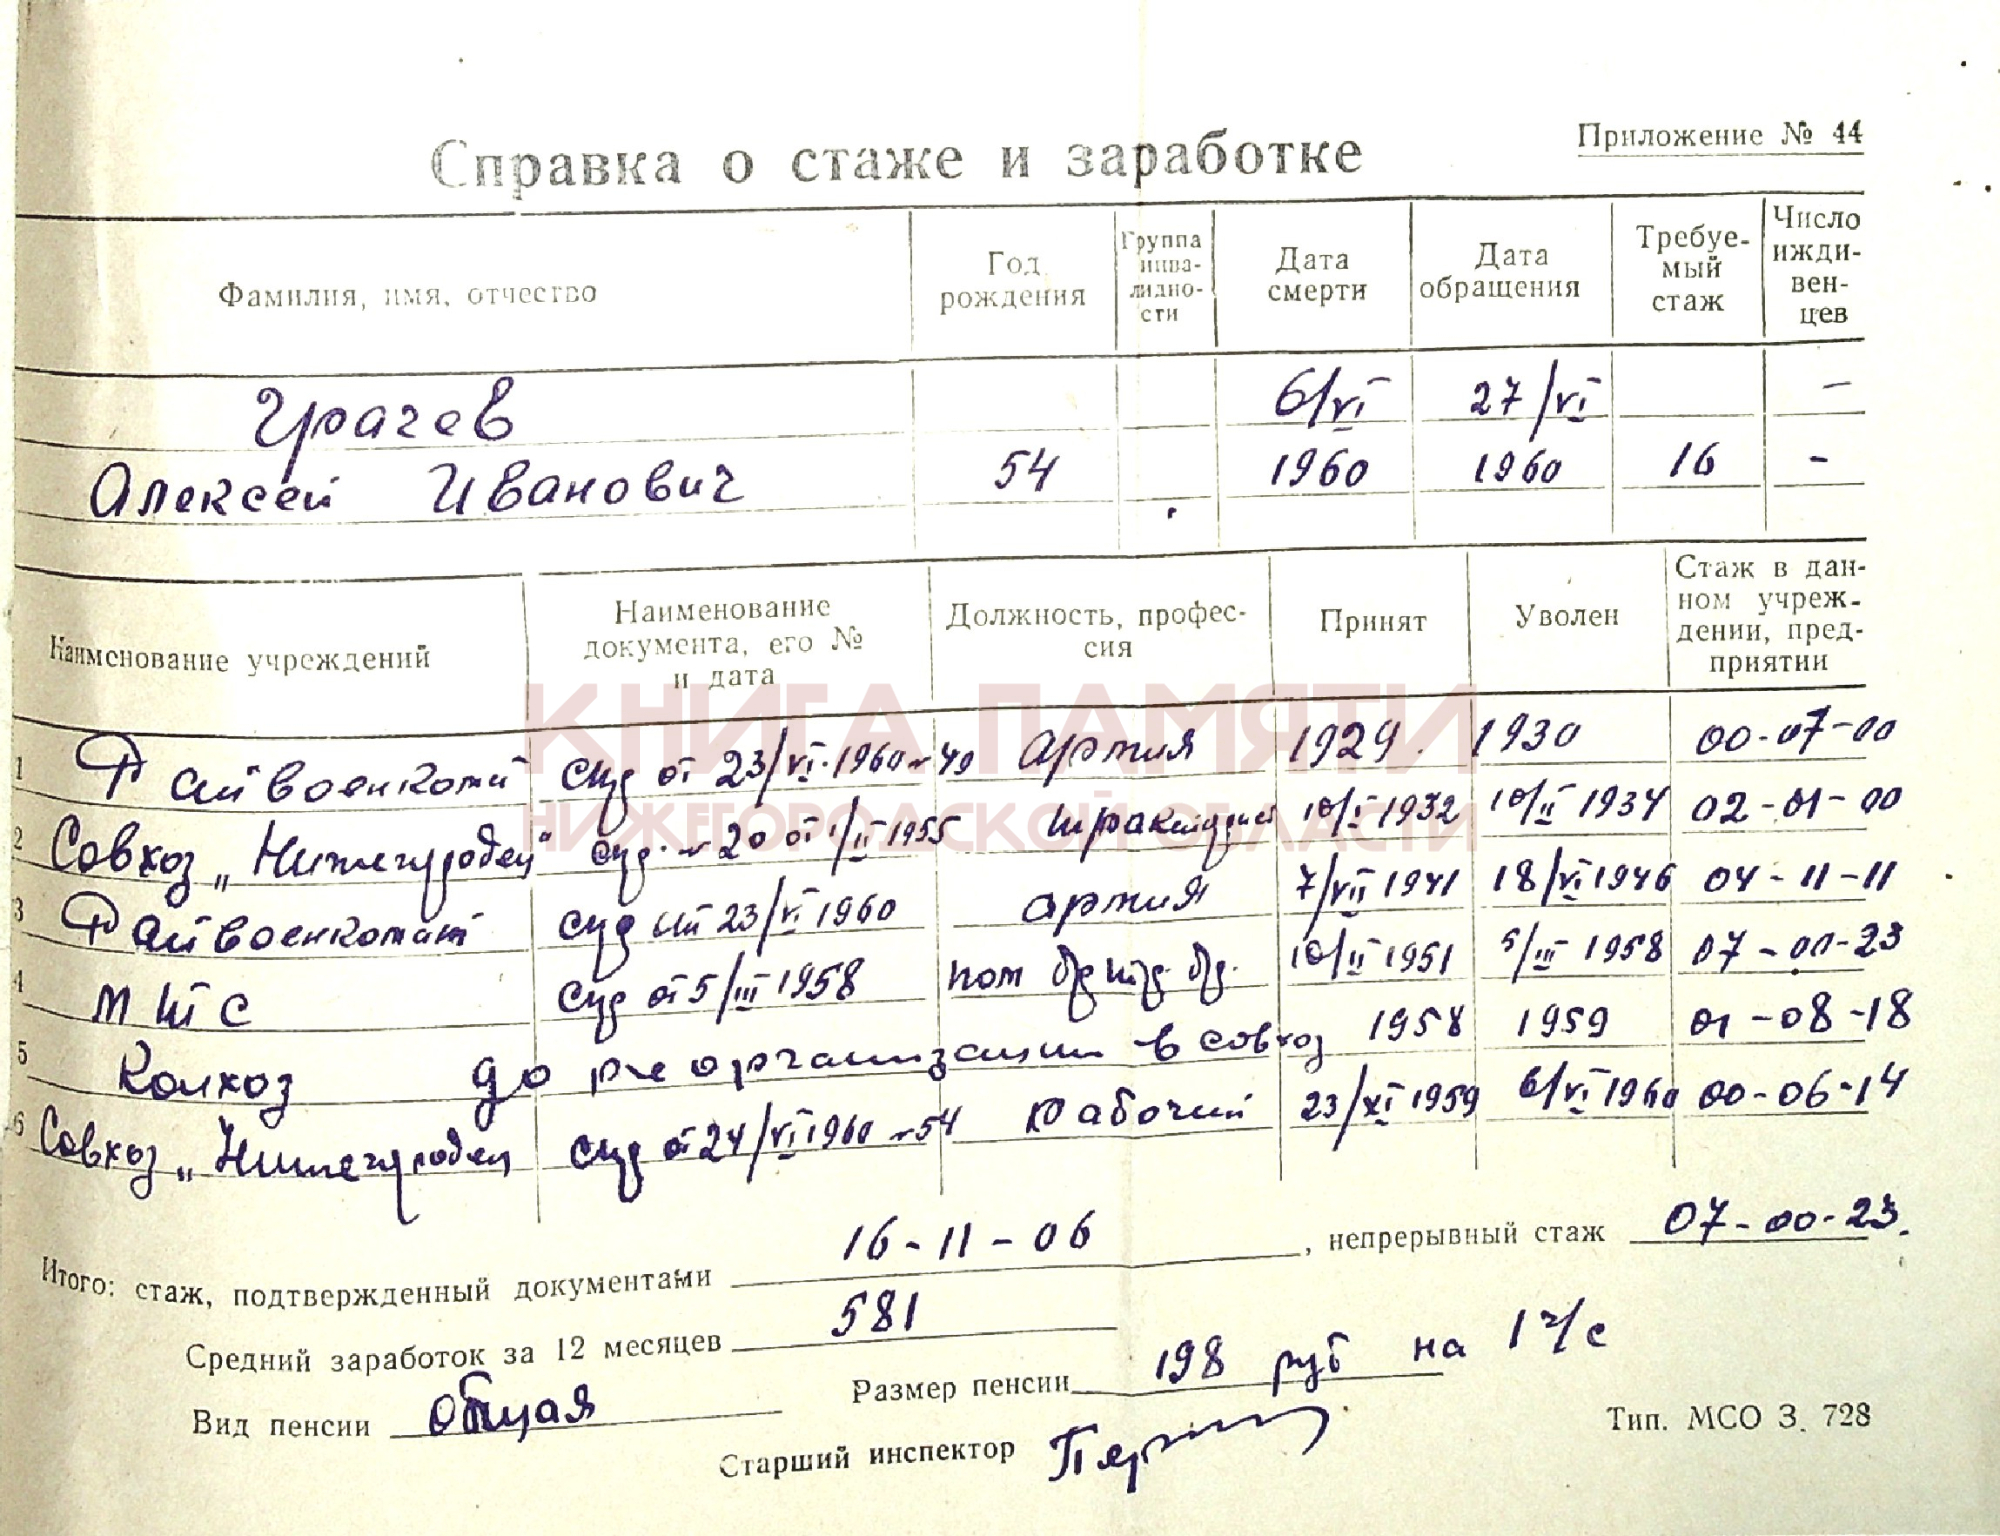 Приложение № 44
Справка о стаже и заработке
Фамилия, имя, отчество Год рождения Группа инвалидности Дата смерти Дата обращения Требуемый стаж Число иждивенцев
Грачев 6/VI 27/VI —
Алексей Иванович 54 1960 1960 16 -
Наименование учреждений Наименование документа, его № и дата Должность, профессия Принят Уволен Стаж в данном учреждении, предприятии
1 Райвоенкомат от 23/VI-1960 армия 1929 1930 00-07-00
2 Совхоз „Нижегородец" № 20 от 1/II 1955 10/I 1932 10/II 1934 02-01-00
3 Райвоенкомат 23/VI 1960 армия 7/VII 1941 18/VI 1946 04-11-11
4 МТС от 5/III 1958 пом 10/II 1951 5/III 1958 07-00-23
5 Колхоз до реорганизации в совхоз 1958 1959 01-08-18
6 Совхоз „Нижегородец от 24/VI 1960 № 54 Рабочий 23/XI 1959 6/VI 1960 00-06-14
КНИГА ПАМЯТИ
НИЖЕГОРОДСКОЙ ОБЛАСТИ
Итого: стаж, подтвержденный документами 16-11-06, непрерывный стаж 07-00-23.
Средний заработок за 12 месяцев 581
Вид пенсии общая Размер пенсии 198 руб на 1 ч/с
Старший инспектор
Тип. МСО З. 728